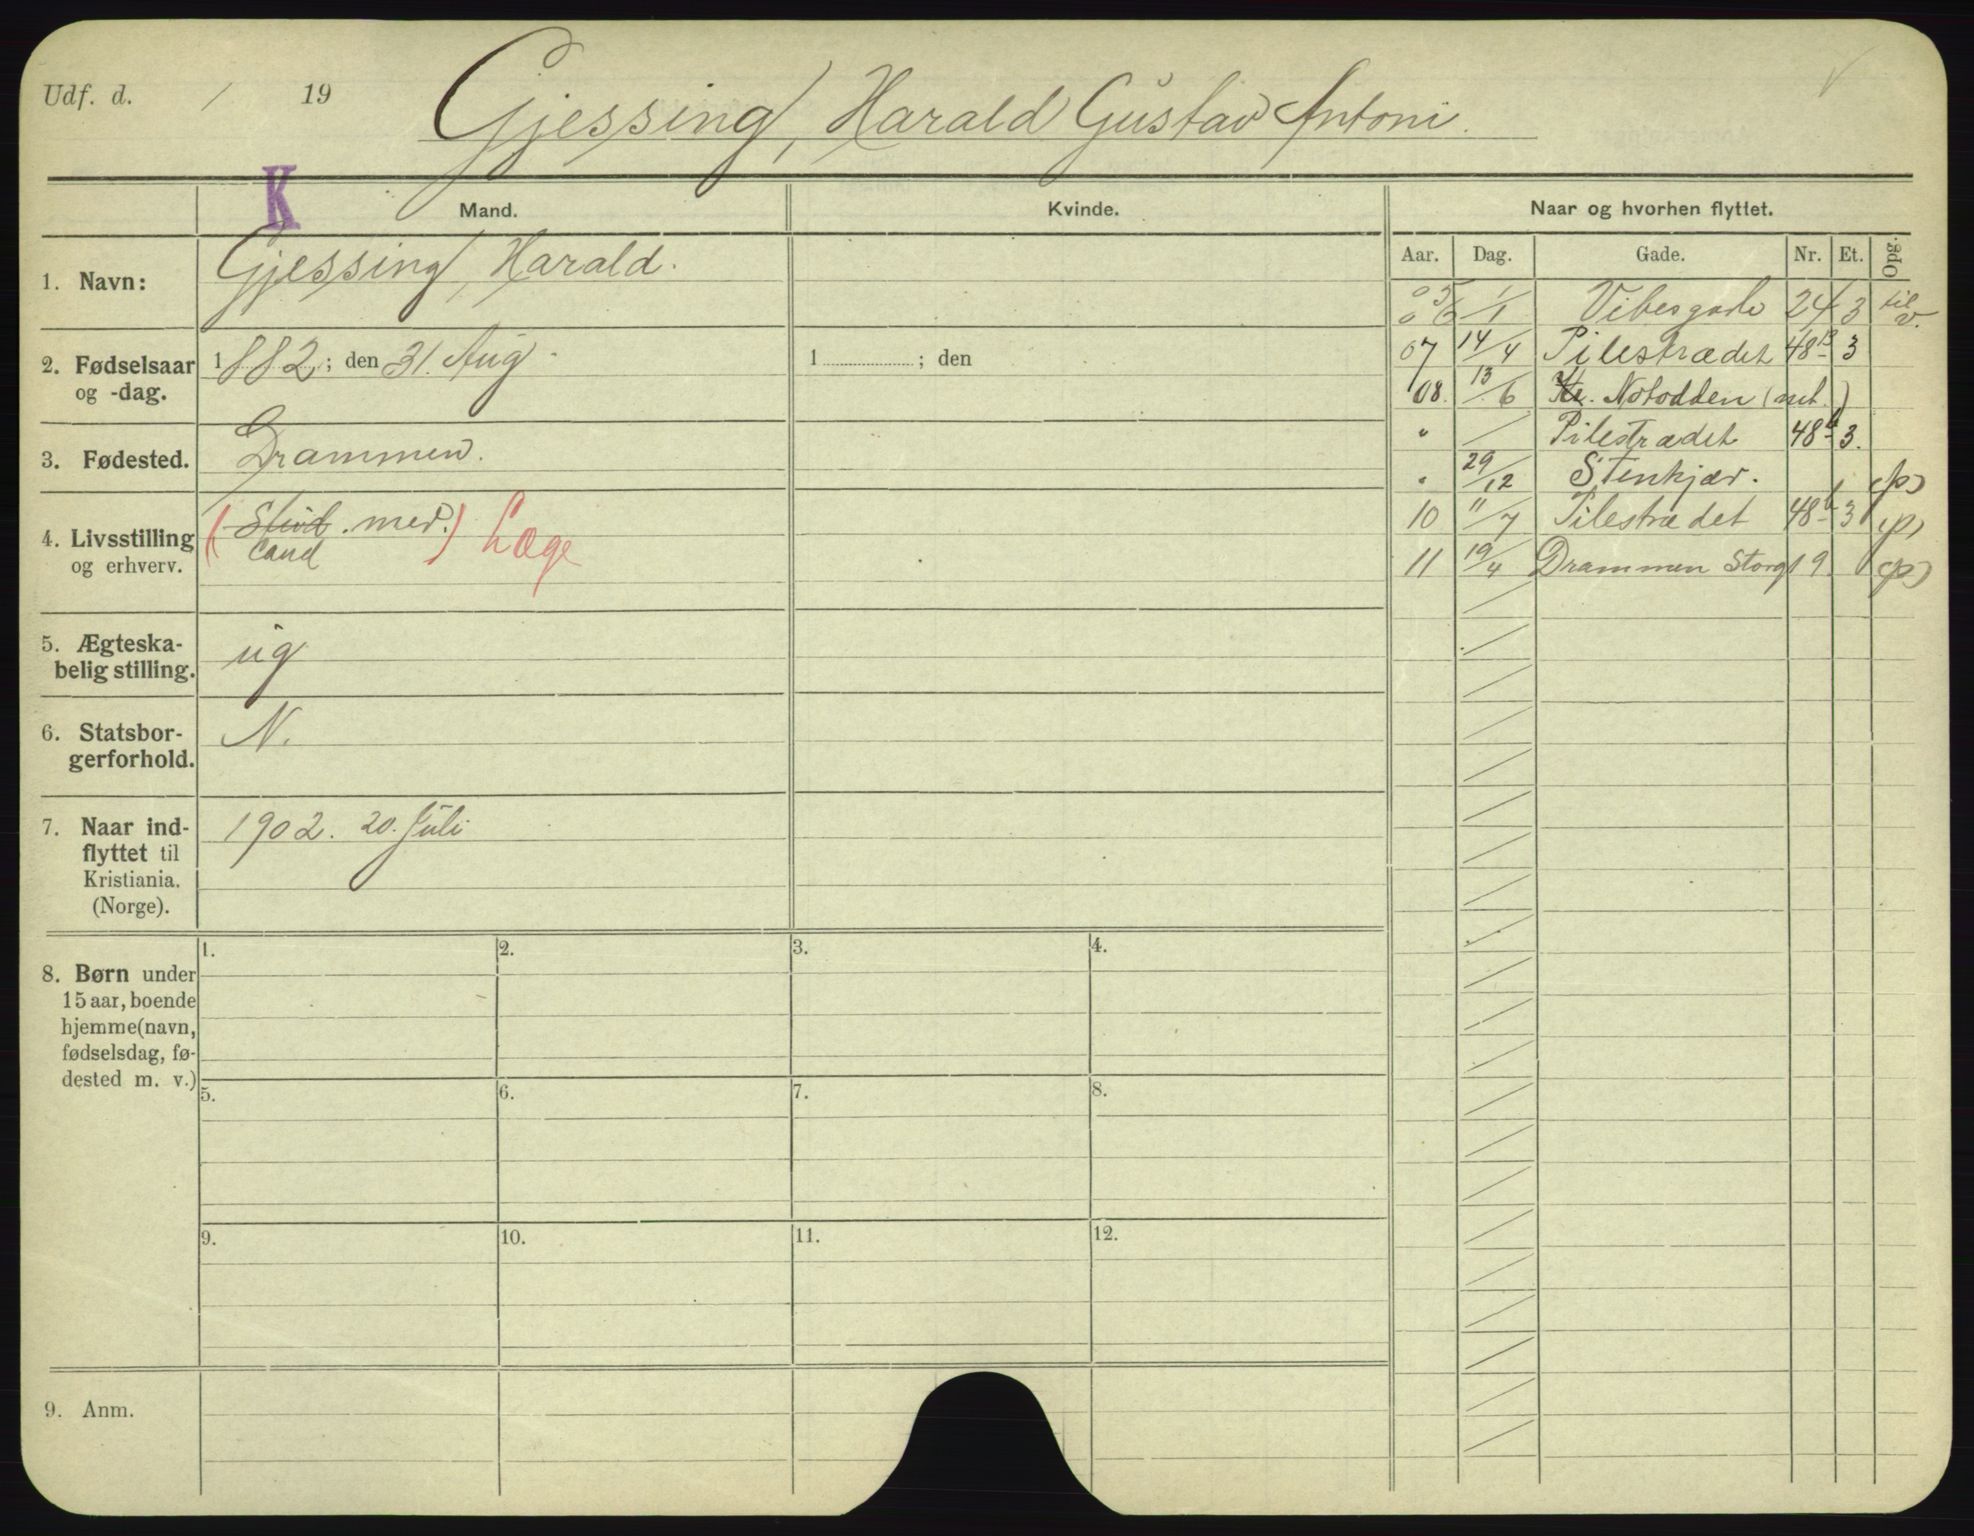 Udf. d. / 19
Gjessing, Harald Gustav Antoni.
K
Mand.
Kvinde.
Naar og hvorhen flyttet.
Aar. Dag. Gade. Nr. Et. Opg.
1. Navn: Gjessing, Harald.
2. Fødselsaar og -dag. 1882; den 31. Aug.
1 ; den
3. Fødested. Drammen.
4. Livsstilling og erhverv. (Stud. med.) Læge
cand
5. Ægteska-
belig stilling. ug
6. Statsbor-
gerforhold. N.
7. Naar ind-
flyttet til
Kristiania.
(Norge).
1902. 20. Juli
05
06 1/1 Vibesgade 24 3 til v.
07 14/4 Pilestrædet 48B 3
08. 13/6 Notodden (
" / Pilestrædet 48b 3.
" 29/12 Stenkjær. (p)
10 11/7 Pilestrædet 48b 3 (p)
11 19/4 Drammen Storgt 9. (p)
8. Børn under
15 aar, boende
hjemme (navn,
fødselsdag, fø-
dested m. v.)
1. 2. 3. 4.
5. 6. 7. 8.
9. 10. 11. 12.
9. Anm.